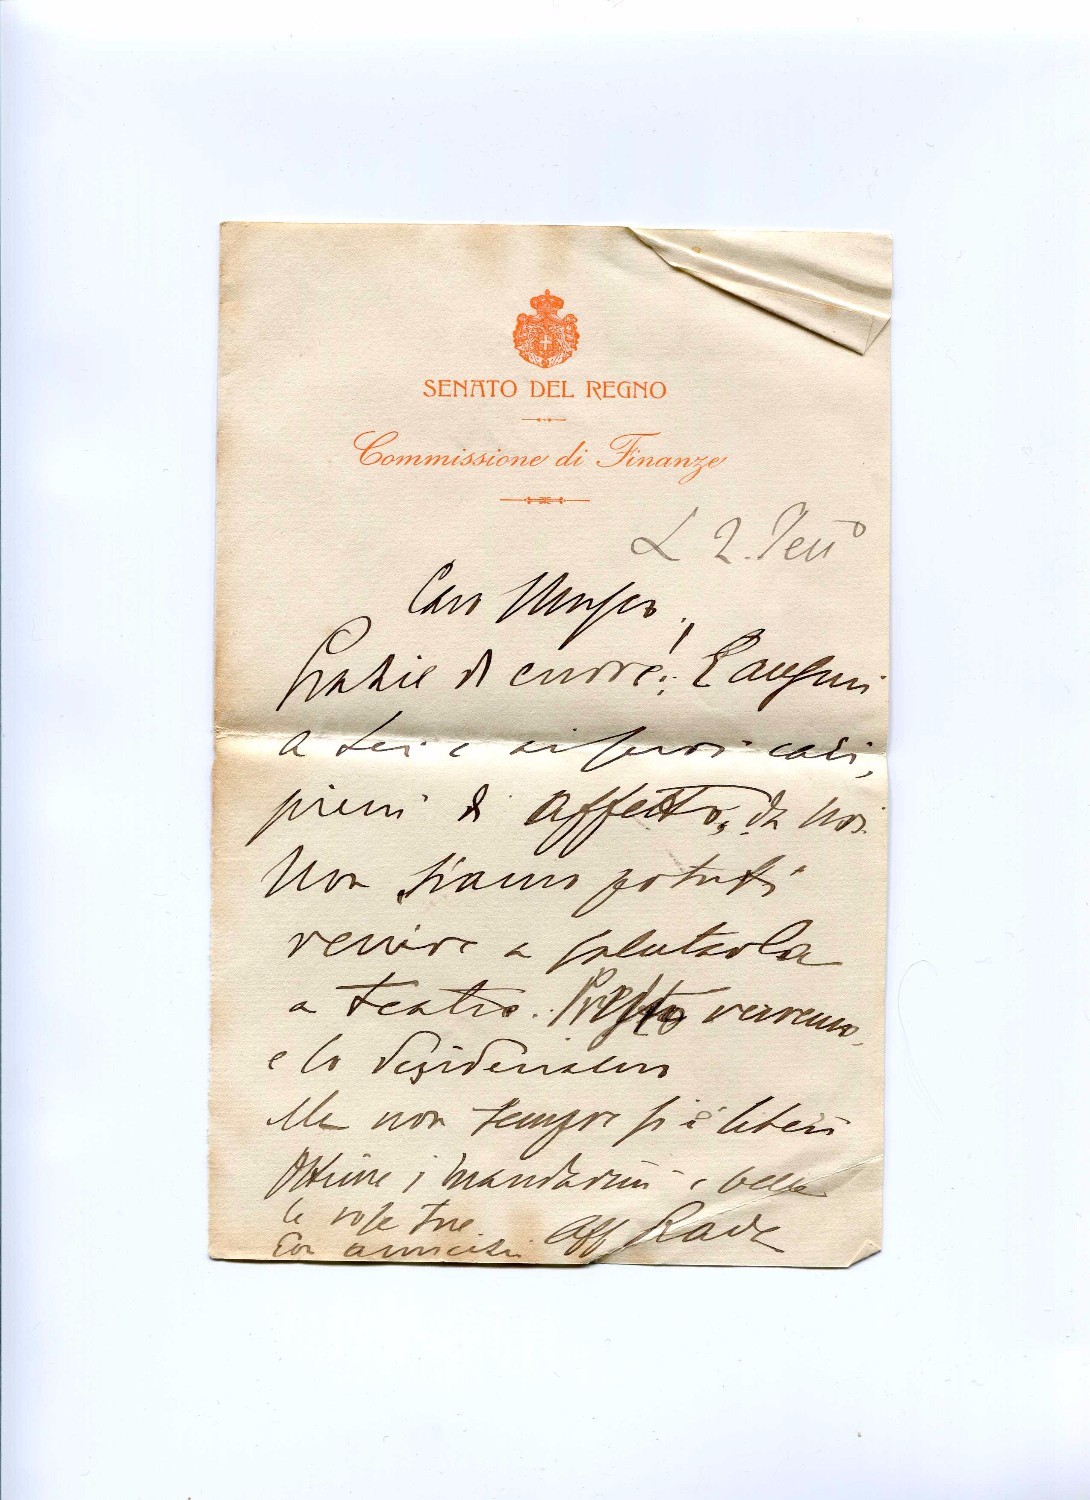 SENATO DEL REGNO
Commissione di Finanze
2.
Caro
Grazie di cuore! E auguri
a Lei e ai suoi cari,
pieni di affetto, da noi.
Non siamo potuti
venire a salutarla
a teatro. Presto verremo,
e lo desideriamo
Ma non sempre si è liberi
Ottime i mandarini e belle
le rose tue
Con amicizia Aff